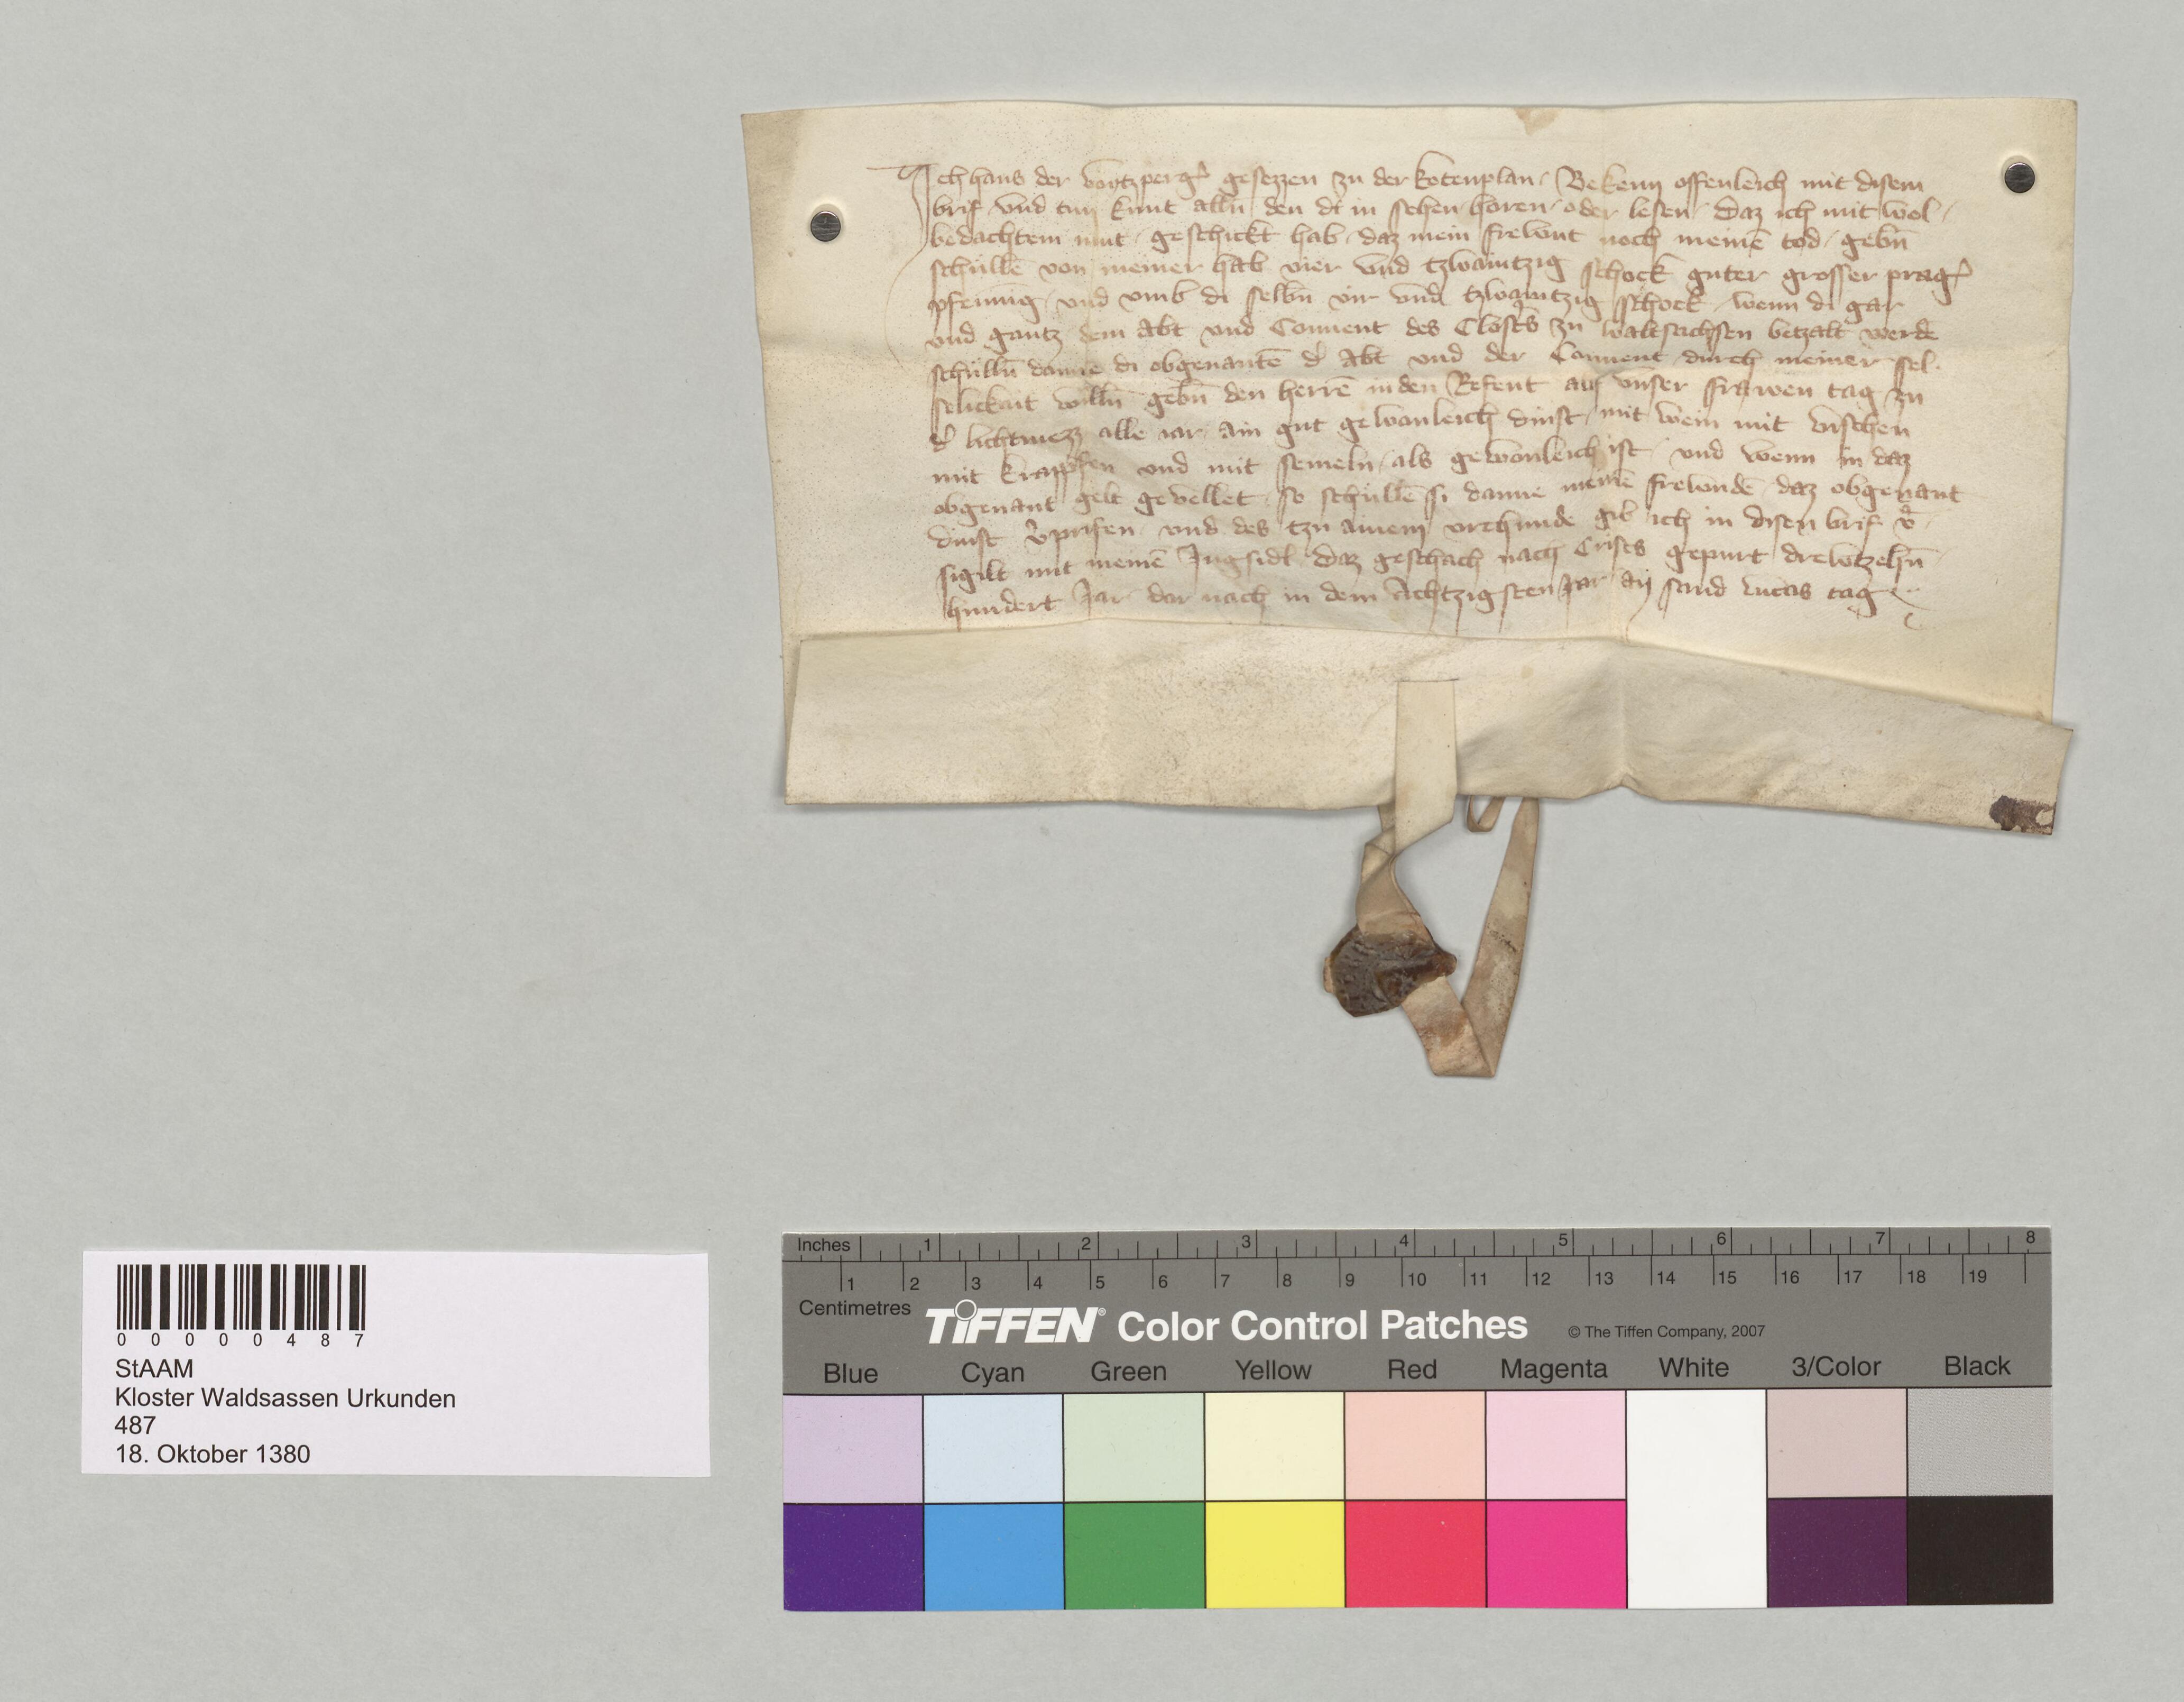 Ich hans der vontzperg' gesezzen zu der kotenplan / Bekenn offenleich mit disem
brif / vnd tun kunt alln̄ den di in sehen / horen / oder lesen / Daz ich mit wol /
bedachtem mut / geschickt hab / daz mein frewnt noch meinē tod / gebn̄
schüllē von meiner hab vier vnd tzwaintzig schock guter grosser prag'
pfennīg / vnd vmb di selbn̄ vir vnd tzwaintzig schock / wenn di gar
vnd gantz dem Abt vnd Conuent des Closters zu waltsachsen betzalt werdē
schülln̄ danne di obgenantē d' Abt vnd der Conuent durch meiner sel
selickait willn̄ gebn̄ den herrē in den Refent auf vnser frawen tag zu
d' lichtmezz alle iar ain gut gewonleich dinst / mit wein mit vischen
mit krapfen vnd mit semeln / als gewonleich ist / vnd wenn in daz
obgenant gelt gevellet / so schüllē si danne meinē frewndē daz obgenant
dinst v'prifen / vnd des tzu ainem vrchunde gib ich in disen brif v'
sigilt mit meinē Jngsidl / Daz geschach nach Crists gepurt drewtzehn̄
hundert Jar dar nach in dem Achtzigsten Jar an sand lucas tag
0 0 0 0 0 4 8 7
StAAM
Kloster Waldsassen Urkunden
487
18. Oktober 1380
Inches 1 2 3 4 5 6 7 8
1 2 3 4 5 6 7 8 9 10 11 12 13 14 15 16 17 18 19
Centimetres
TIFFEN® Color Control Patches © The Tiffen Company, 2007
Blue Cyan Green Yellow Red Magenta White 3/Color Black